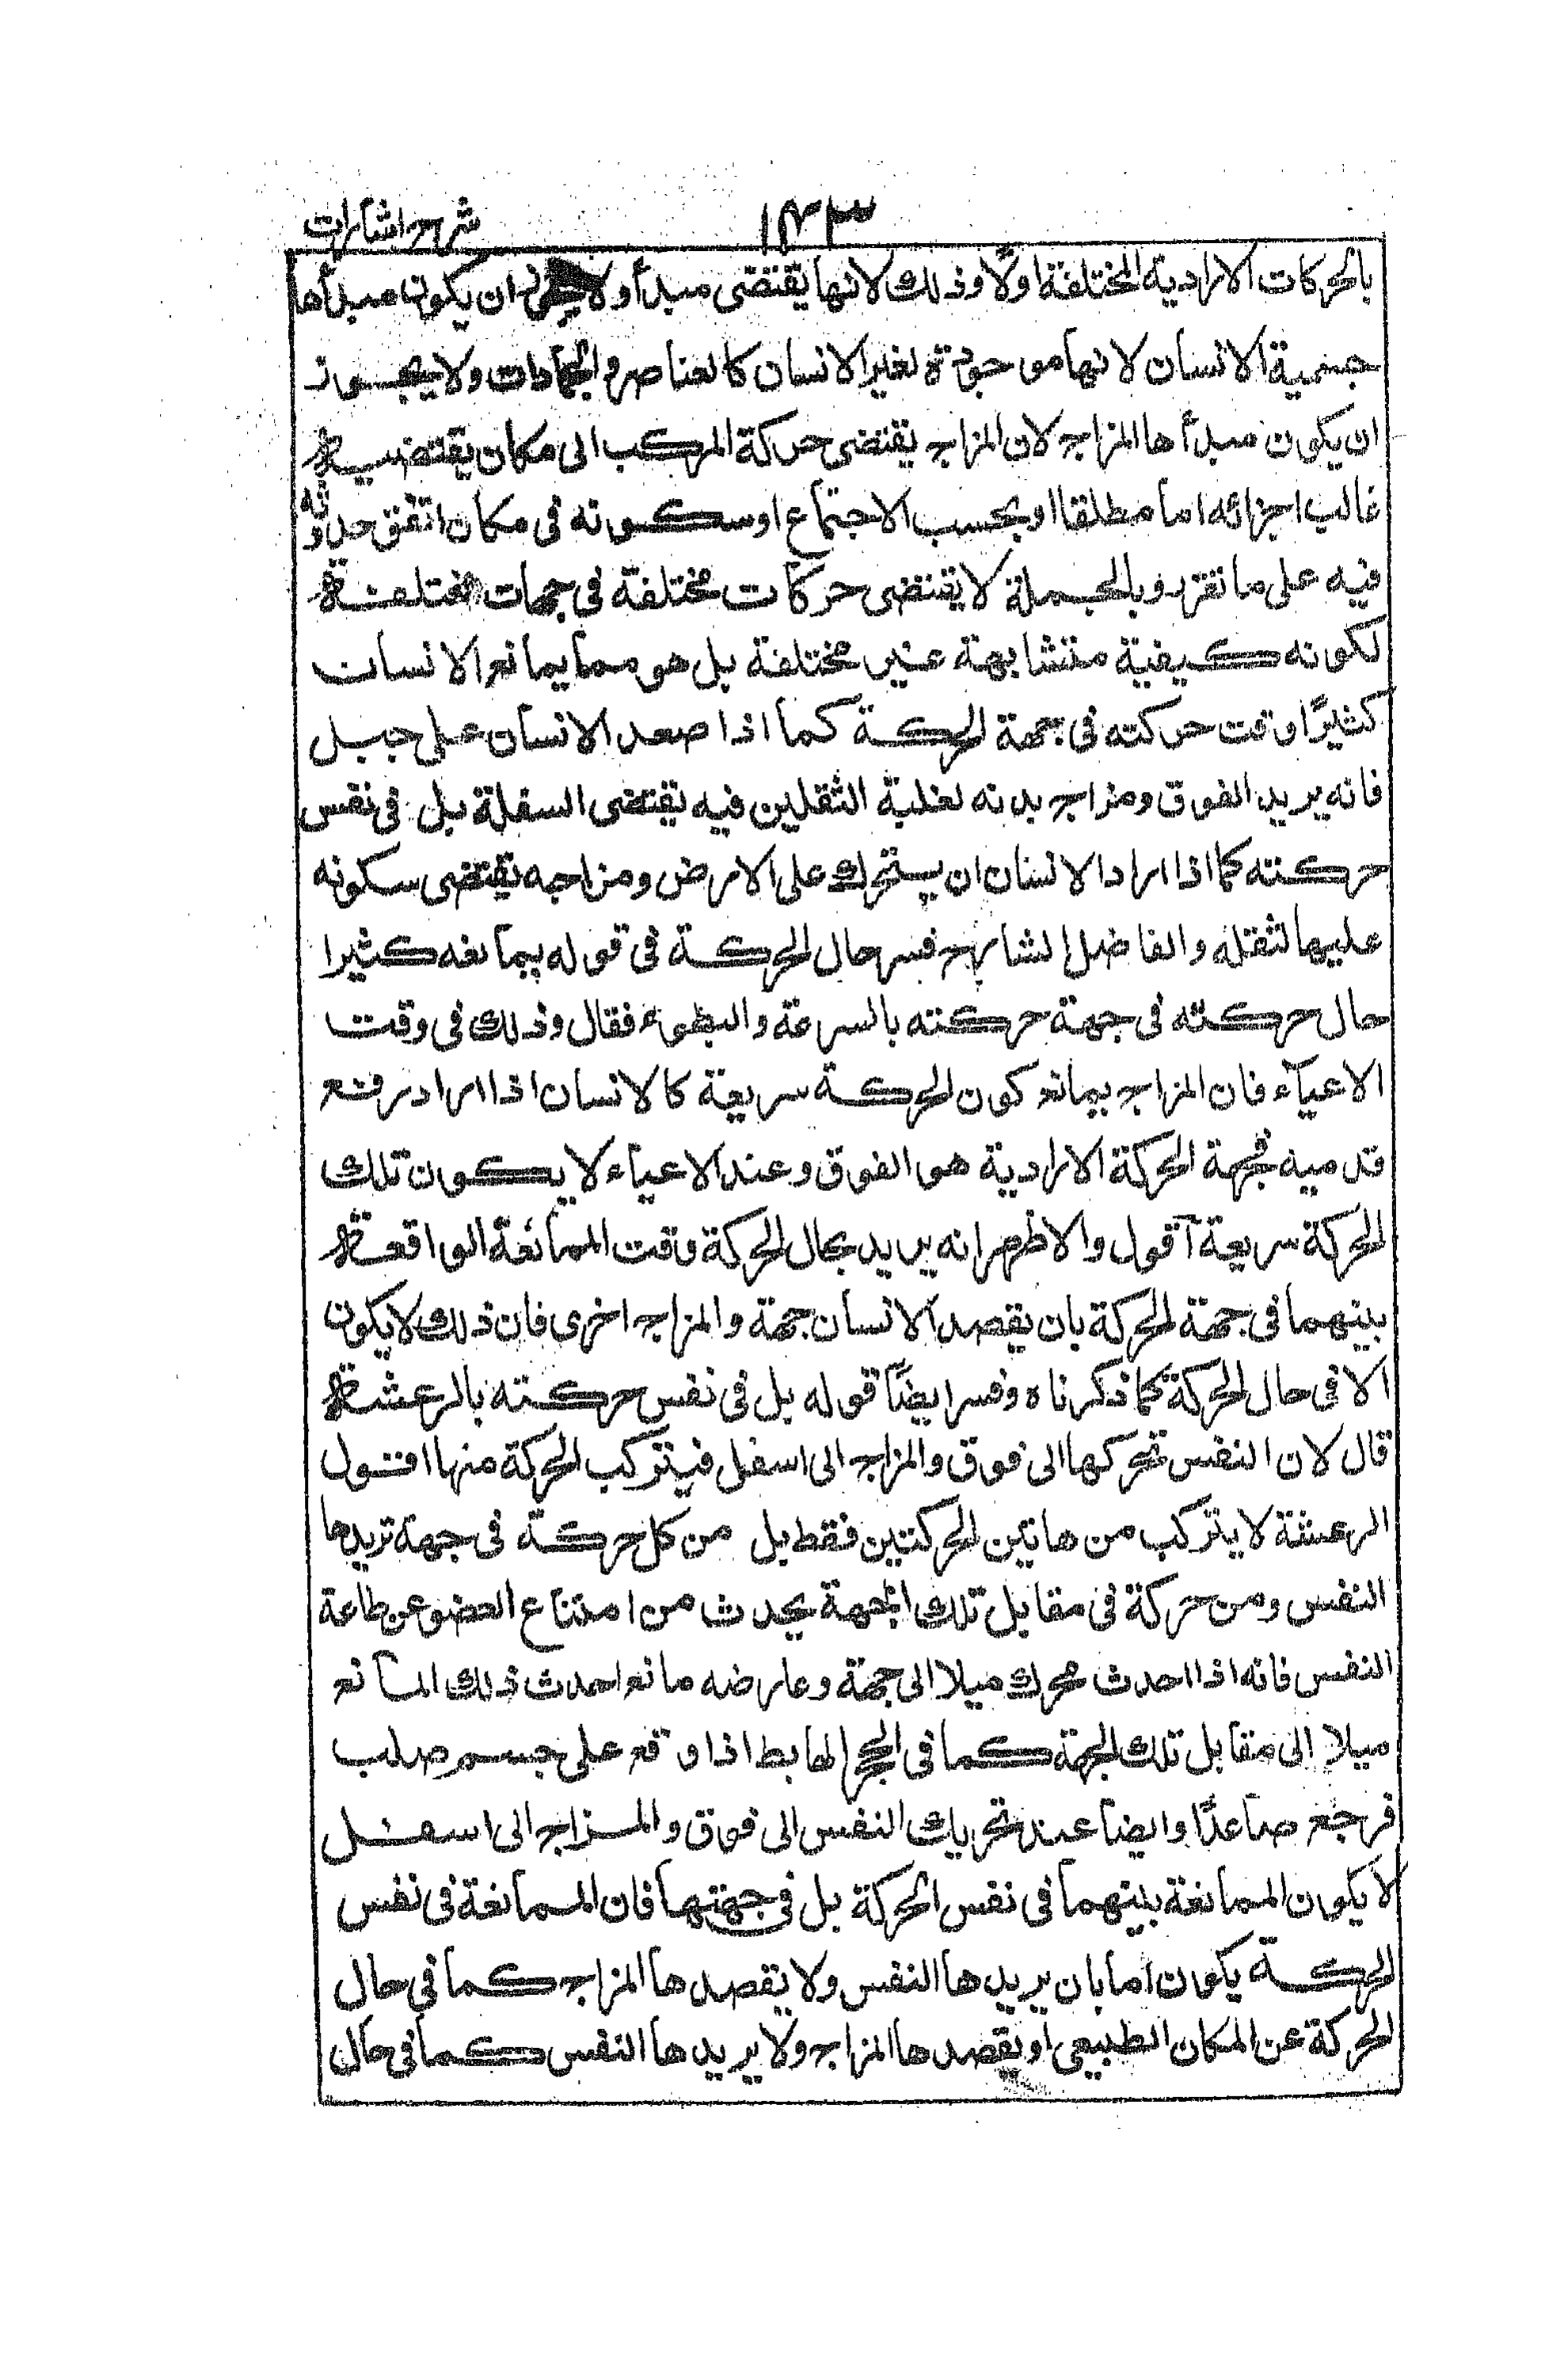 ١٤٣
شرح اشارات
بالحركات الارادية المختلفة اولًا وذلك لانها يقتضى مبدأ ولا يجوز ان يكون مبدأها
جسمية الانسان لانها موجودة لغير الانسان كالعناصر والجمادات ولا يجوز
ان يكون مبدأها المزاج لان المزاج يقتضى حركة المركب الى مكان يقتضيه
غالب اجزائه اما مطلقا او بحسب الاجتماع او سكونه فى مكان اتفق حدوثه
فيه على ما تقرر وبالجملة لا يقتضى حركات مختلفة فى جهات مختلفة
لكونه كيفية متشابهة غير مختلفة بل هو مما يمانع الانسان
كثيرًا وقت حركته فى جهة الحركة كما اذا صعد الانسان على جبل
فانه يريد الفوق ومزاج بدنه لغلبة الثقلين فيه يقتضى السفلة بل فى نفس
حركته كما اذا اراد الانسان ان يتحرك على الارض ومزاجه يقتضى سكونه
عليها لثقله والفاضل الشارح فسر حال الحركة فى قوله يمانعه كثيرا
حال حركته فى جهة حركته بالسرعة والبطوء فقال وذلك فى وقت
الاعيآء فان المزاج يمانع كون الحركة سريعة كالانسان اذا اراد رفع
قدميه فجهة الحركة الارادية هو الفوق وعند الاعياء لا يكون تلك
الحركة سريعة اقول والاظهر انه يريد بحال الحركة وقت الممانعة الواقعة
بينهما فى جهة الحركة بان يقصد الانسان جهة والمزاج اخرى فان ذلك لا يكون
الا فى حال الحركة كما ذكرناه وفسر ايضًا قوله بل فى نفس حركته بالرعشة
قال لان النفس تحركها الى فوق والمزاج الى اسفل فيتركب الحركة منها اقول
الرعشة لا يتركب من هاتين الحركتين فقط بل من كل حركة فى جهة تريدها
النفس ومن حركة فى مقابل تلك الجهة يحدث من امتناع العضو عن طاعة
النفس فانه اذا احدث محرك ميلا الى جهة وعارضه مانع احدث ذلك المانع
ميلا الى مقابل تلك الجهة كما فى الحجر الهابط اذا وقع على جسم صلب
فرجع صاعدًا وايضا عند تحريك النفس الى فوق والمزاج الى اسفل
لا يكون الممانعة بينهما فى نفس الحركة بل فى جهتها فان الممانعة فى نفس
الحركة يكون اما بان يريدها النفس ولا يقصدها المزاج كما فى حال
الحركة عن المكان الطبيعى او يقصدها المزاج ولا يريدها النفس كما فى حال